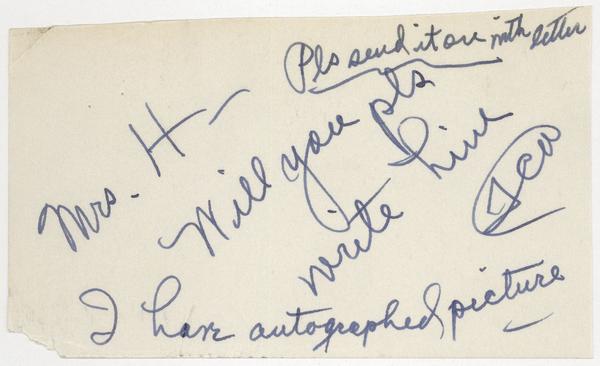 Pls send it on with letter
Mrs. H—
Will you pls
write him
I have autographed picture